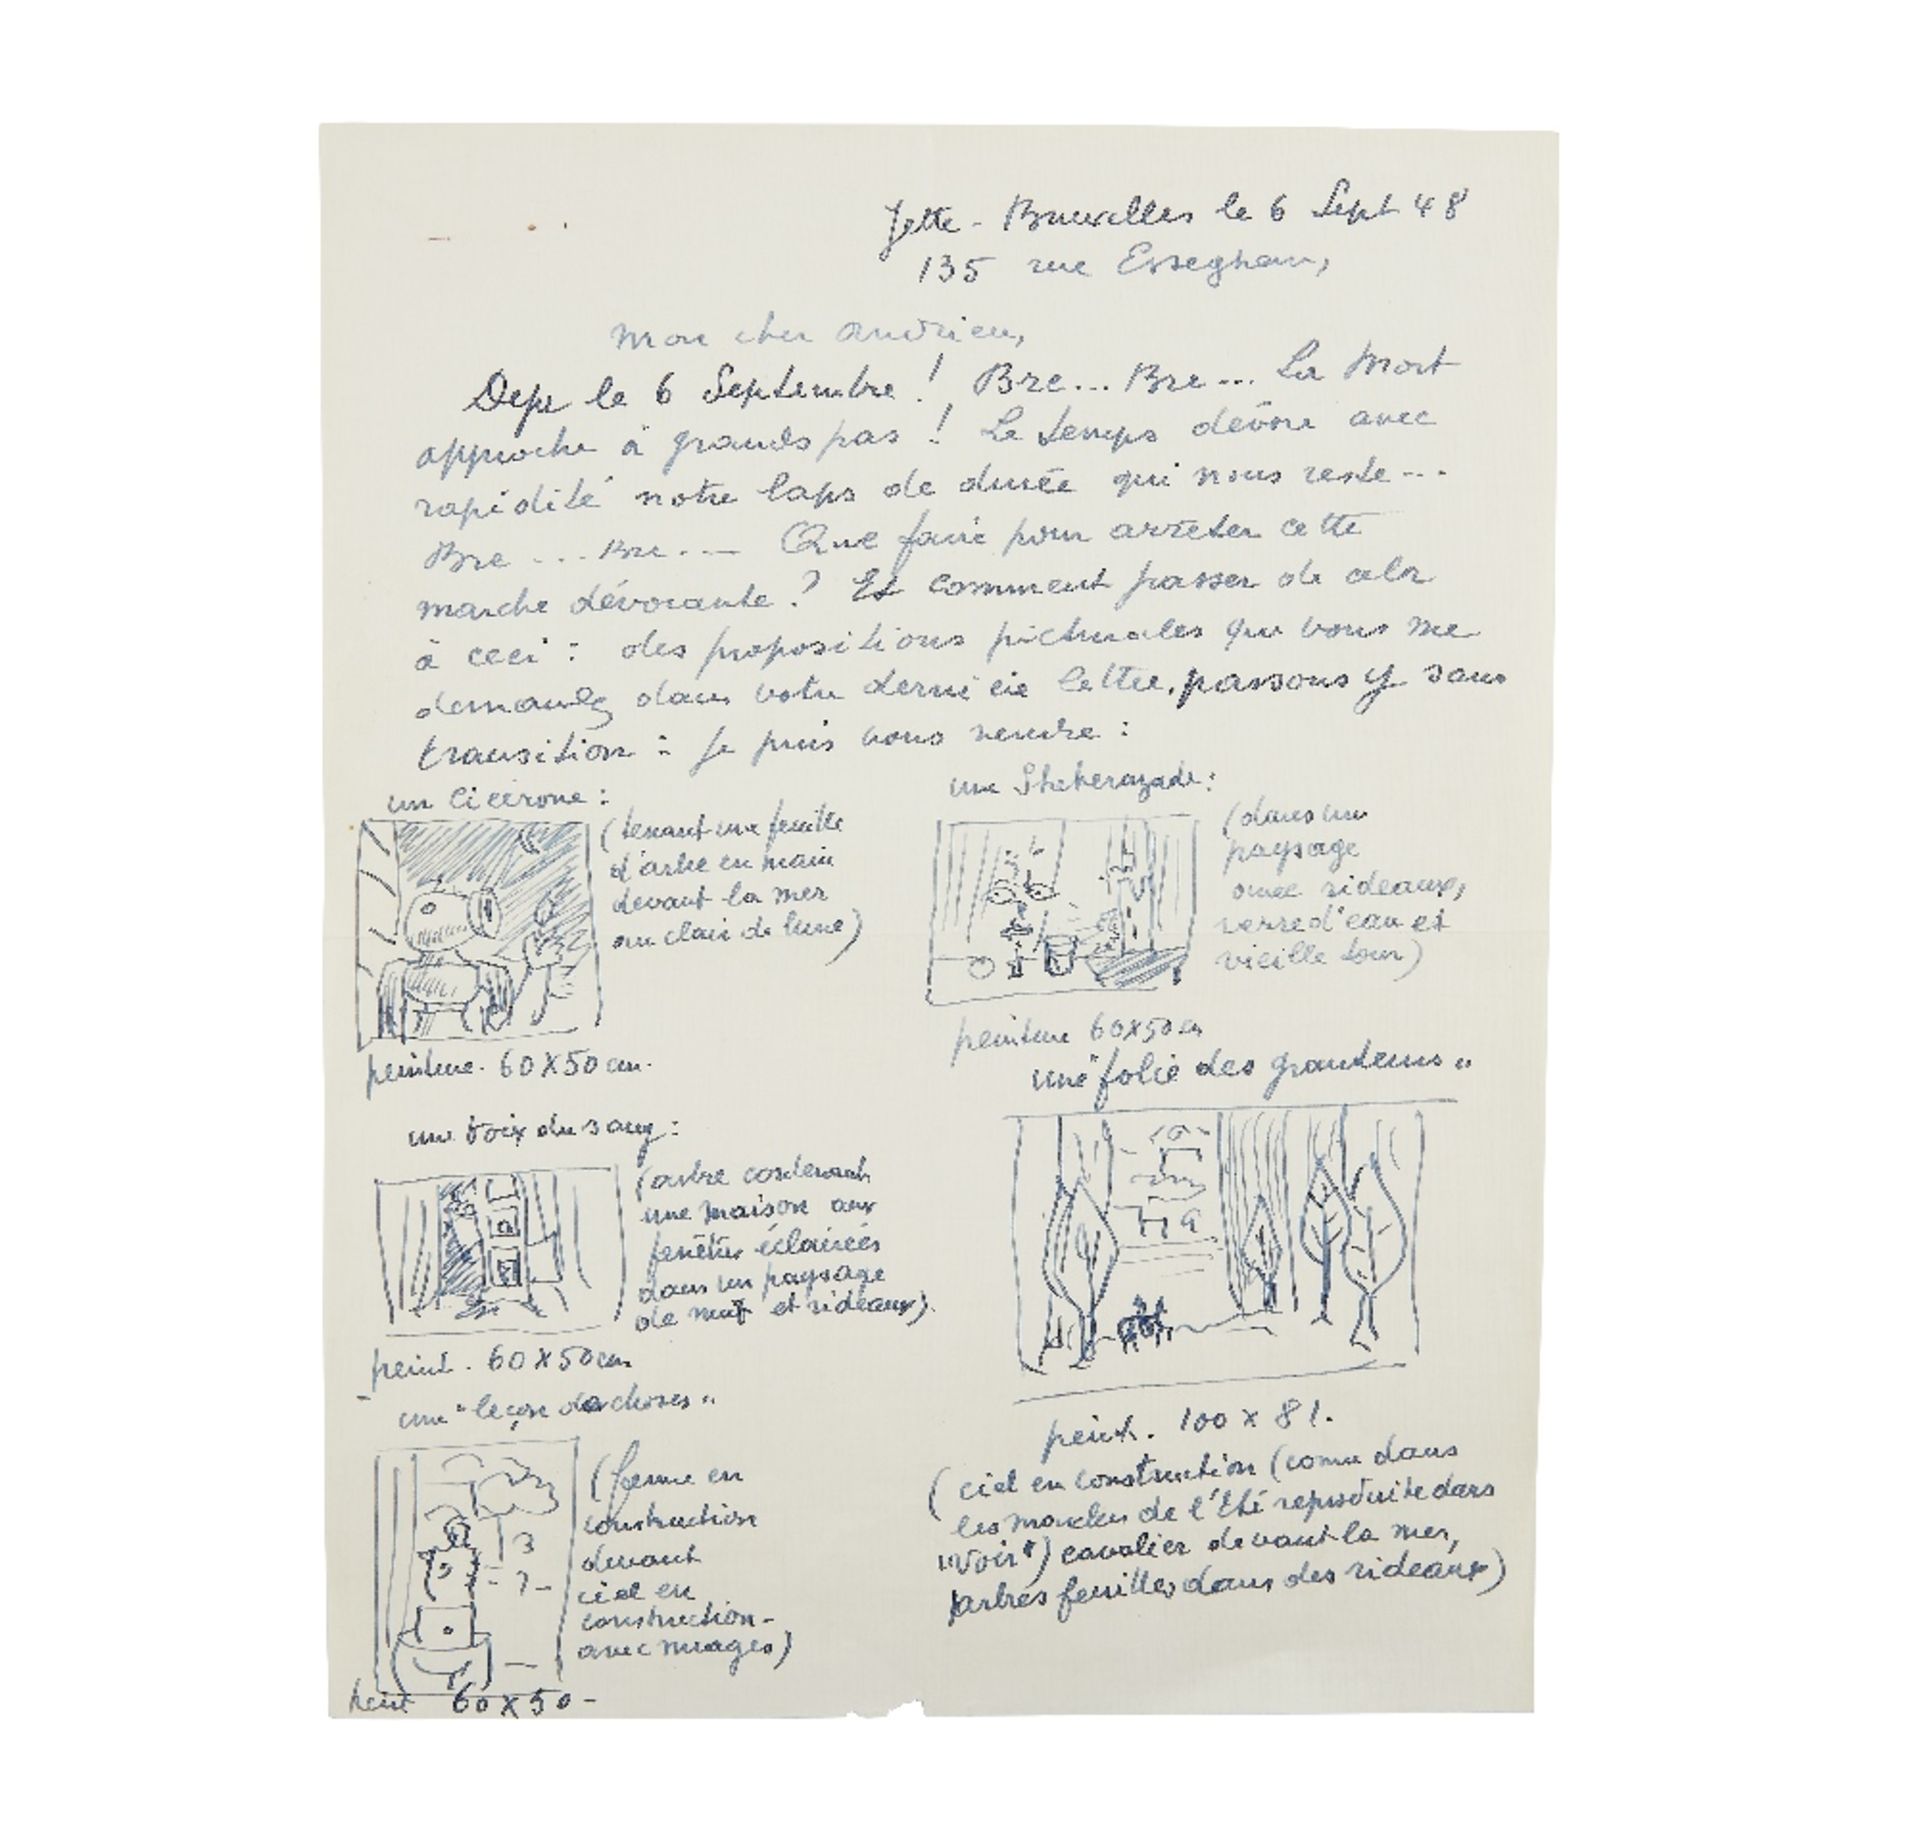 Jette - Bruxelles le 6 Sept 48
135 rue Esseghem,
Mon cher Andrieu,
Deje le 6 Septembre ! Bre... Bre... La Mort
approche à grands pas ! Le temps dévore avec
rapidité notre laps de durée qui nous reste...
Bre ... Bre ... Que faire pour arrêter cette
marche dévorante ? Et comment passer de cela
à ceci : des propositions picturales que vous me
demandez dans votre dernière lettre. passons y sans
transition : je puis vous vendre :
un Cicérone :
(tenant une feuille
d'arbre en main
devant la mer
au clair de lune)
peinture. 60 X 50 cm.
une Sheherazade :
(dans un
paysage
avec rideaux,
verre d'eau et
vieille tour)
peinture 60x50 cm
une voix du sang :
(arbre
une maison aux
fenêtres éclairées
dans un paysage
de nuit et rideaux).
peint. 60 X 50 cm
une "leçon de choses"
(femme en
construction
devant
ciel en
construction -
avec nuages)
peint 60 x 50 -
une "folie des grandeurs"
peint. 100 x 81.
(ciel en construction (comme dans
les marches de l'Eté reproduite dans
"Voir") cavalier devant la mer,
arbres feuilles dans des rideaux)